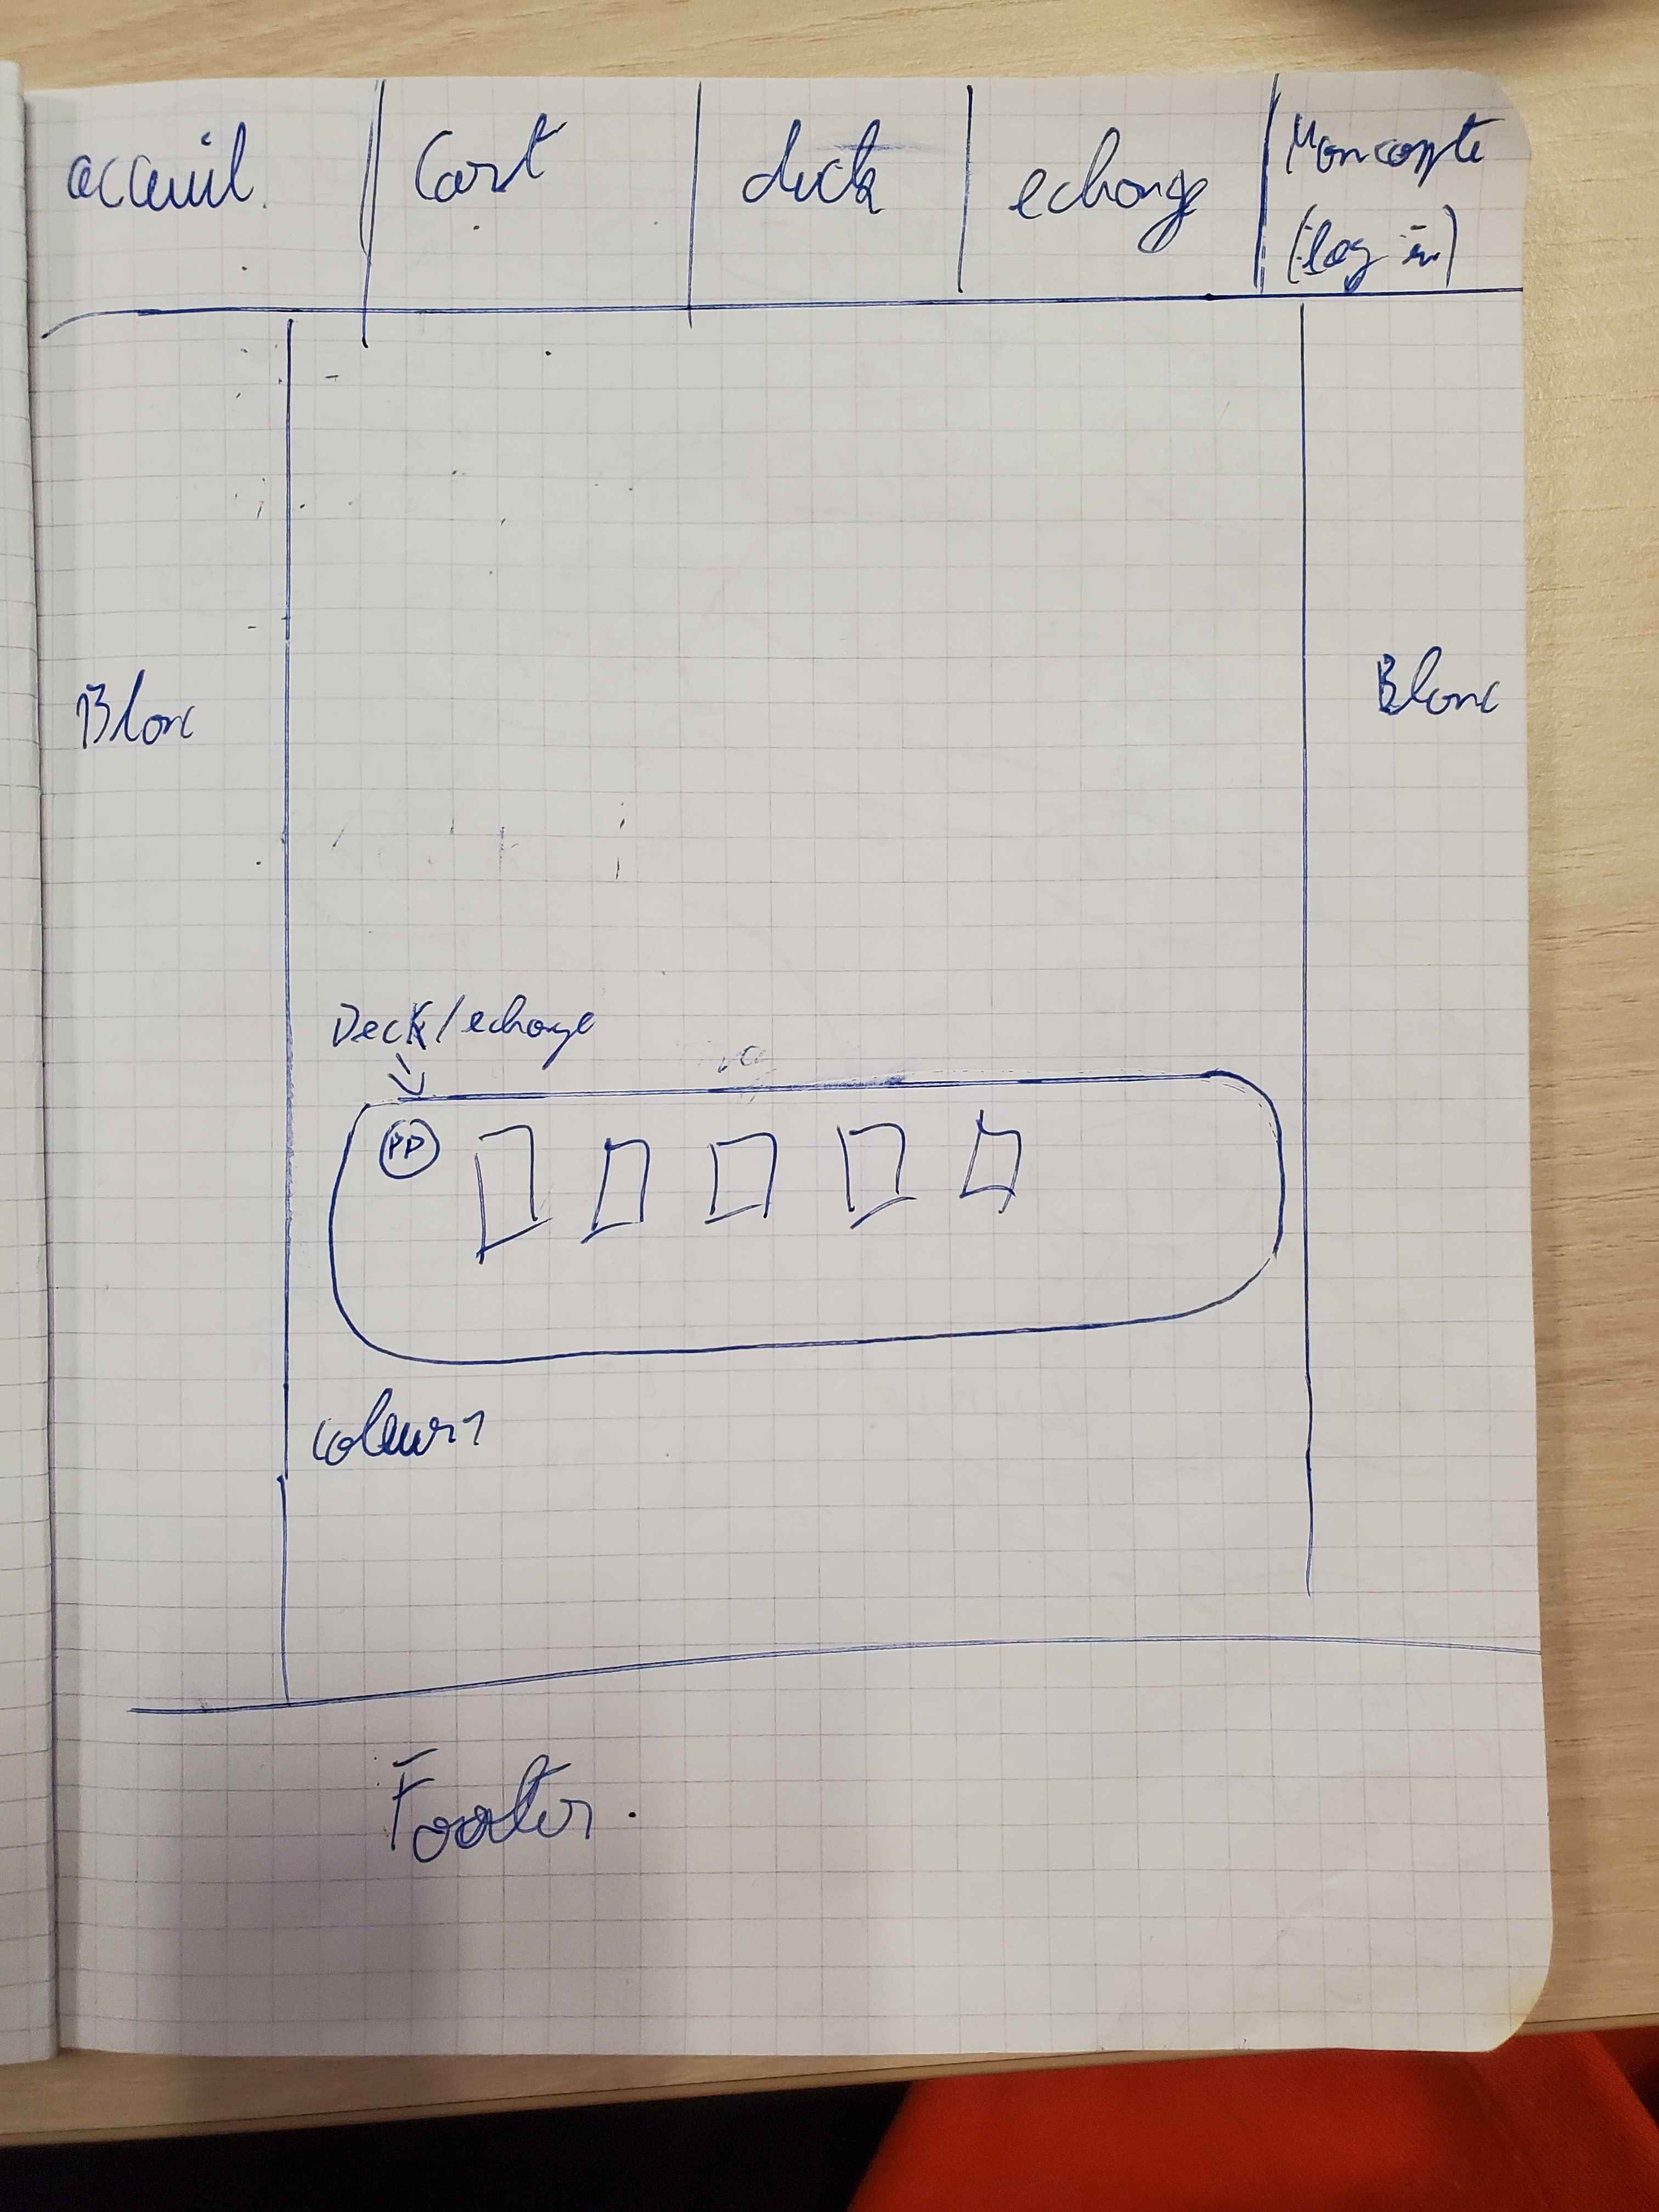 acceuil
Cart
deck
echange
Mon copte
(log in)
Blanc
Blanc
Deck/echange
PP
couleur 1
Footer.